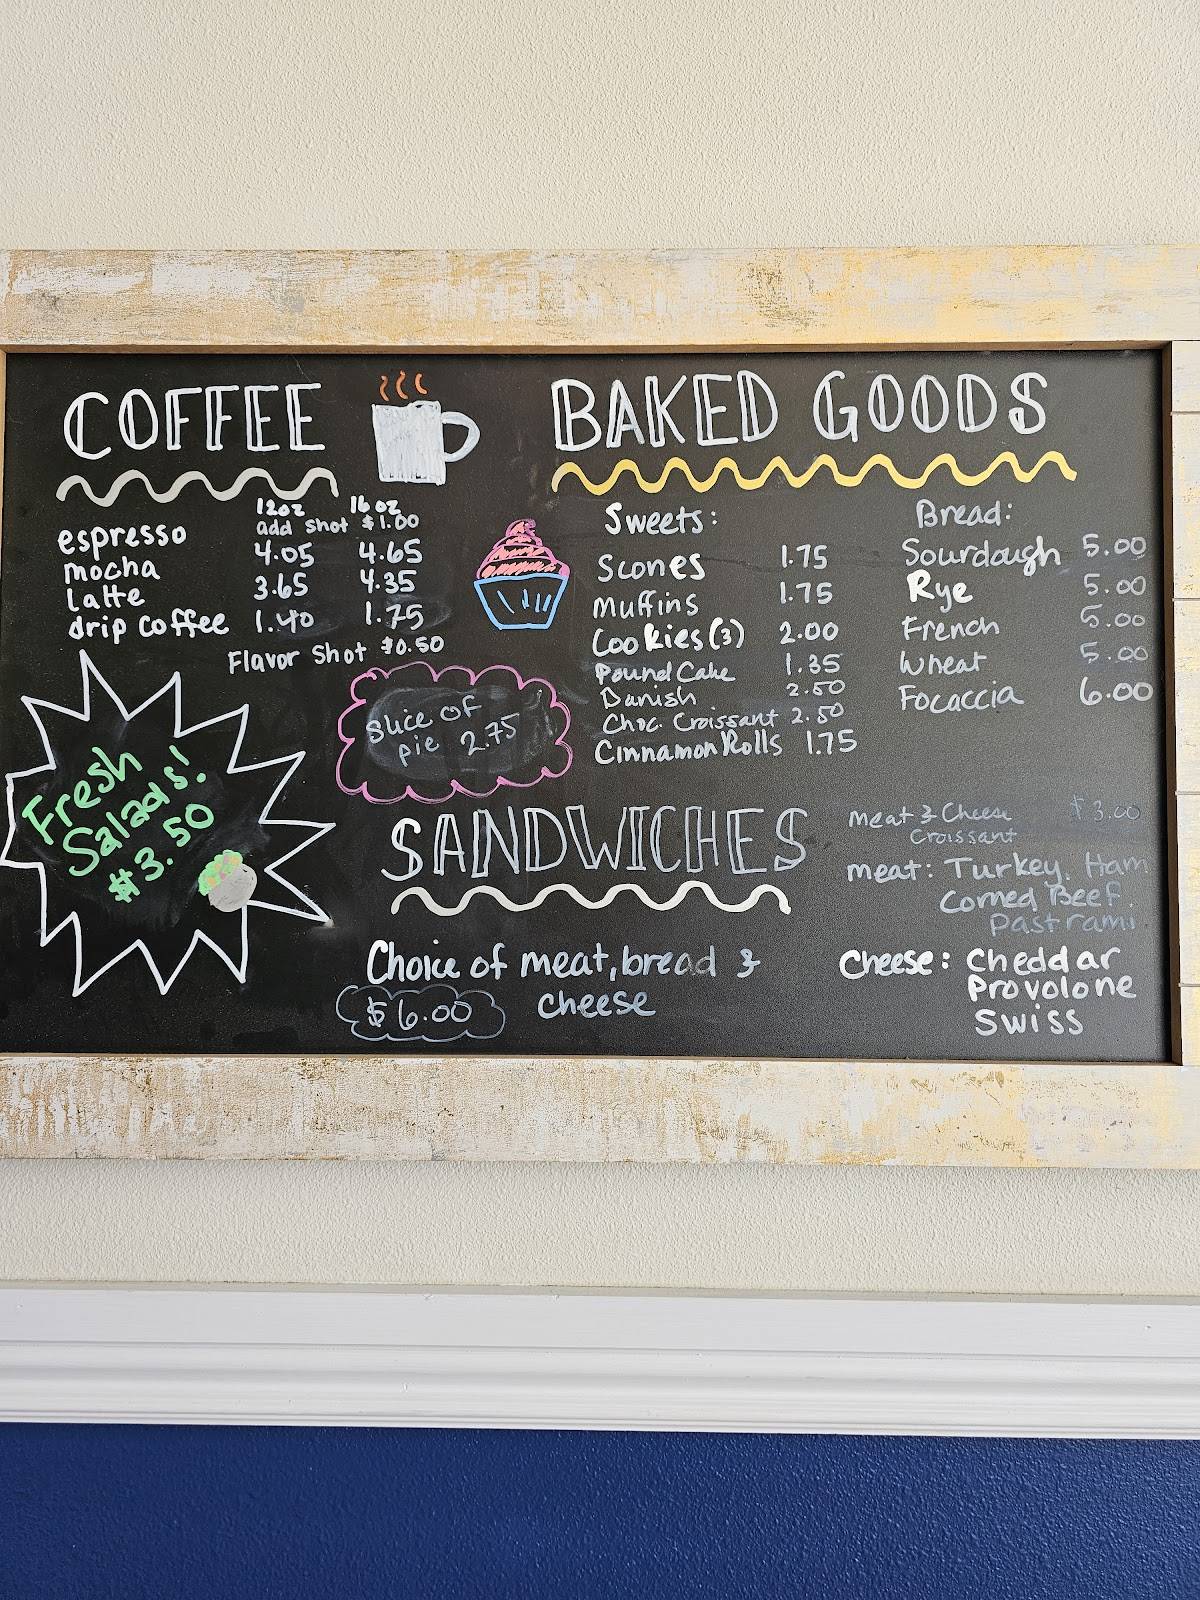 COFFEE
12oz 16oz
espresso add shot $1.00
mocha 4.05 4.65
latte 3.65 4.35
drip coffee 1.40 1.75
Flavor Shot $0.50
Fresh
Salads!
$3.50
slice of
pie 2.75
BAKED GOODS
Sweets:
Scones 1.75
Muffins 1.75
Cookies (3) 2.00
Pound Cake 1.35
Danish 2.50
Choc. Croissant 2.50
Cinnamon Rolls 1.75
Bread:
Sourdough 5.00
Rye 5.00
French 5.00
Wheat 5.00
Focaccia 6.00
SANDWICHES
Choice of meat, bread &
cheese
$6.00
meat & Cheese $3.00
Croissant
meat: Turkey, Ham
Corned Beef.
Pastrami
Cheese: Cheddar
Provolone
Swiss